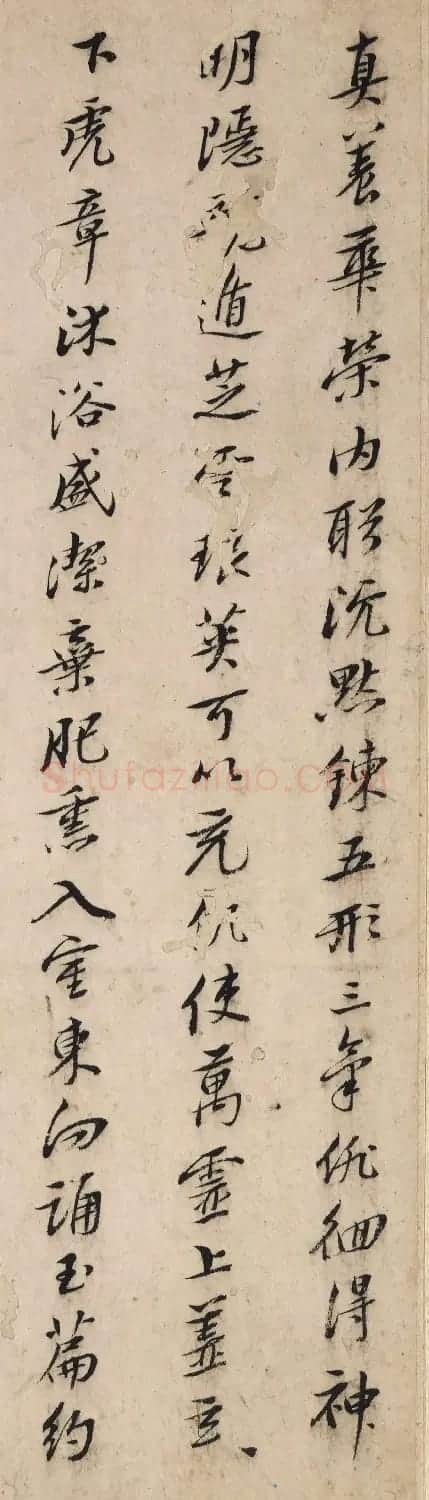 真養華榮內盼沉默鍊五形三氣俳佪得神
明隱龍遁芝雲琅英可以充飢使萬靈上蓋玄〻
下虎章沐浴盛潔棄肥熏入室東向誦玉篇約
shufaziliao.com